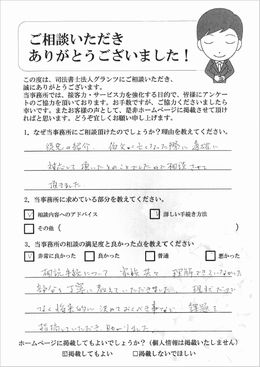 ご相談いただき
ありがとうございました！
この度は、司法書士法人グランツにご相談いただき、
誠にありがとうございます。
当事務所では、接客力・サービス力を強化する目的で、皆様にアンケー
トのご協力を頂いております。お手数ですが、ご協力くださいましたら
幸いです。またお客様の声として、是非ホームページに掲載させて頂け
ればと思います。どうぞ宜しくお願い申し上げます。
1. なぜ当事務所にご相談頂けたのでしょうか？理由を教えてください。
対応して頂いたとのことでしたので相談させて
頂きました
2. 当事務所に求めている部分を教えてください。
相談内容へのアドバイス
詳しい手続き方法
その他（ ）
3. 当事務所の相談の満足度と良かった点を教えてください
非常に良かった 良かった 普通 悪かった
相続手続について 家族共々 理解できていなかった
部分を丁寧に教えていただきました。現状だけで
なく将来的に決めておくべき事など 課題を
指摘していただき、助かりました
ホームページに掲載してもよいでしょうか？（個人情報は掲載いたしません）
掲載してもよい 掲載しないでほしい